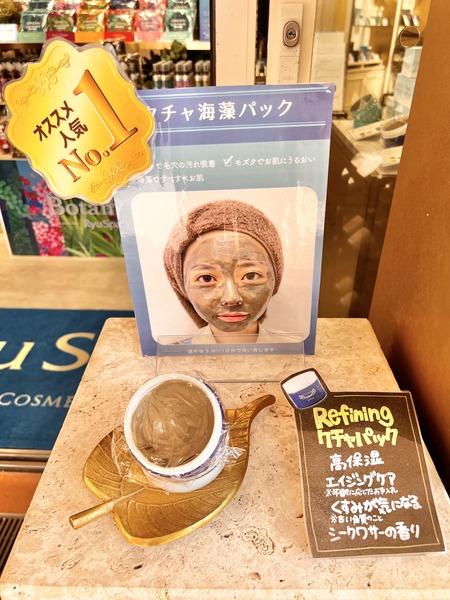 オススメ
人気
No.1
クチャ海藻パック
で毛穴の汚れ吸着 ✓モズクでお肌にうるおい
Botan
RyuSpa
u S
COSME
Refining
クチャパック
高保湿
エイジングケア
※年齢に応じたお手入れ
くすみが気になる
※古い角質のこと
シークワサーの香り